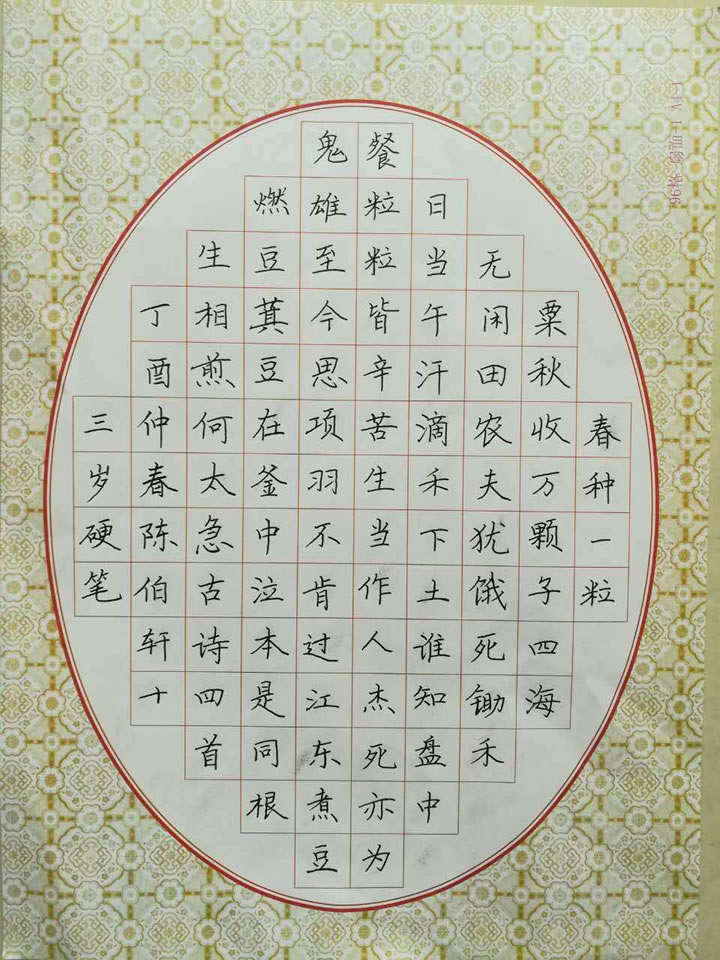 春种一粒
粟秋收万颗子四海
无闲田农夫犹饿死锄禾
日当午汗滴禾下土谁知盘中
餐粒粒皆辛苦生当作人杰死亦为
鬼雄至今思项羽不肯过江东煮豆
燃豆萁豆在釜中泣本是同根
生相煎何太急古诗四首
丁酉仲春陈伯轩十
三岁硬笔